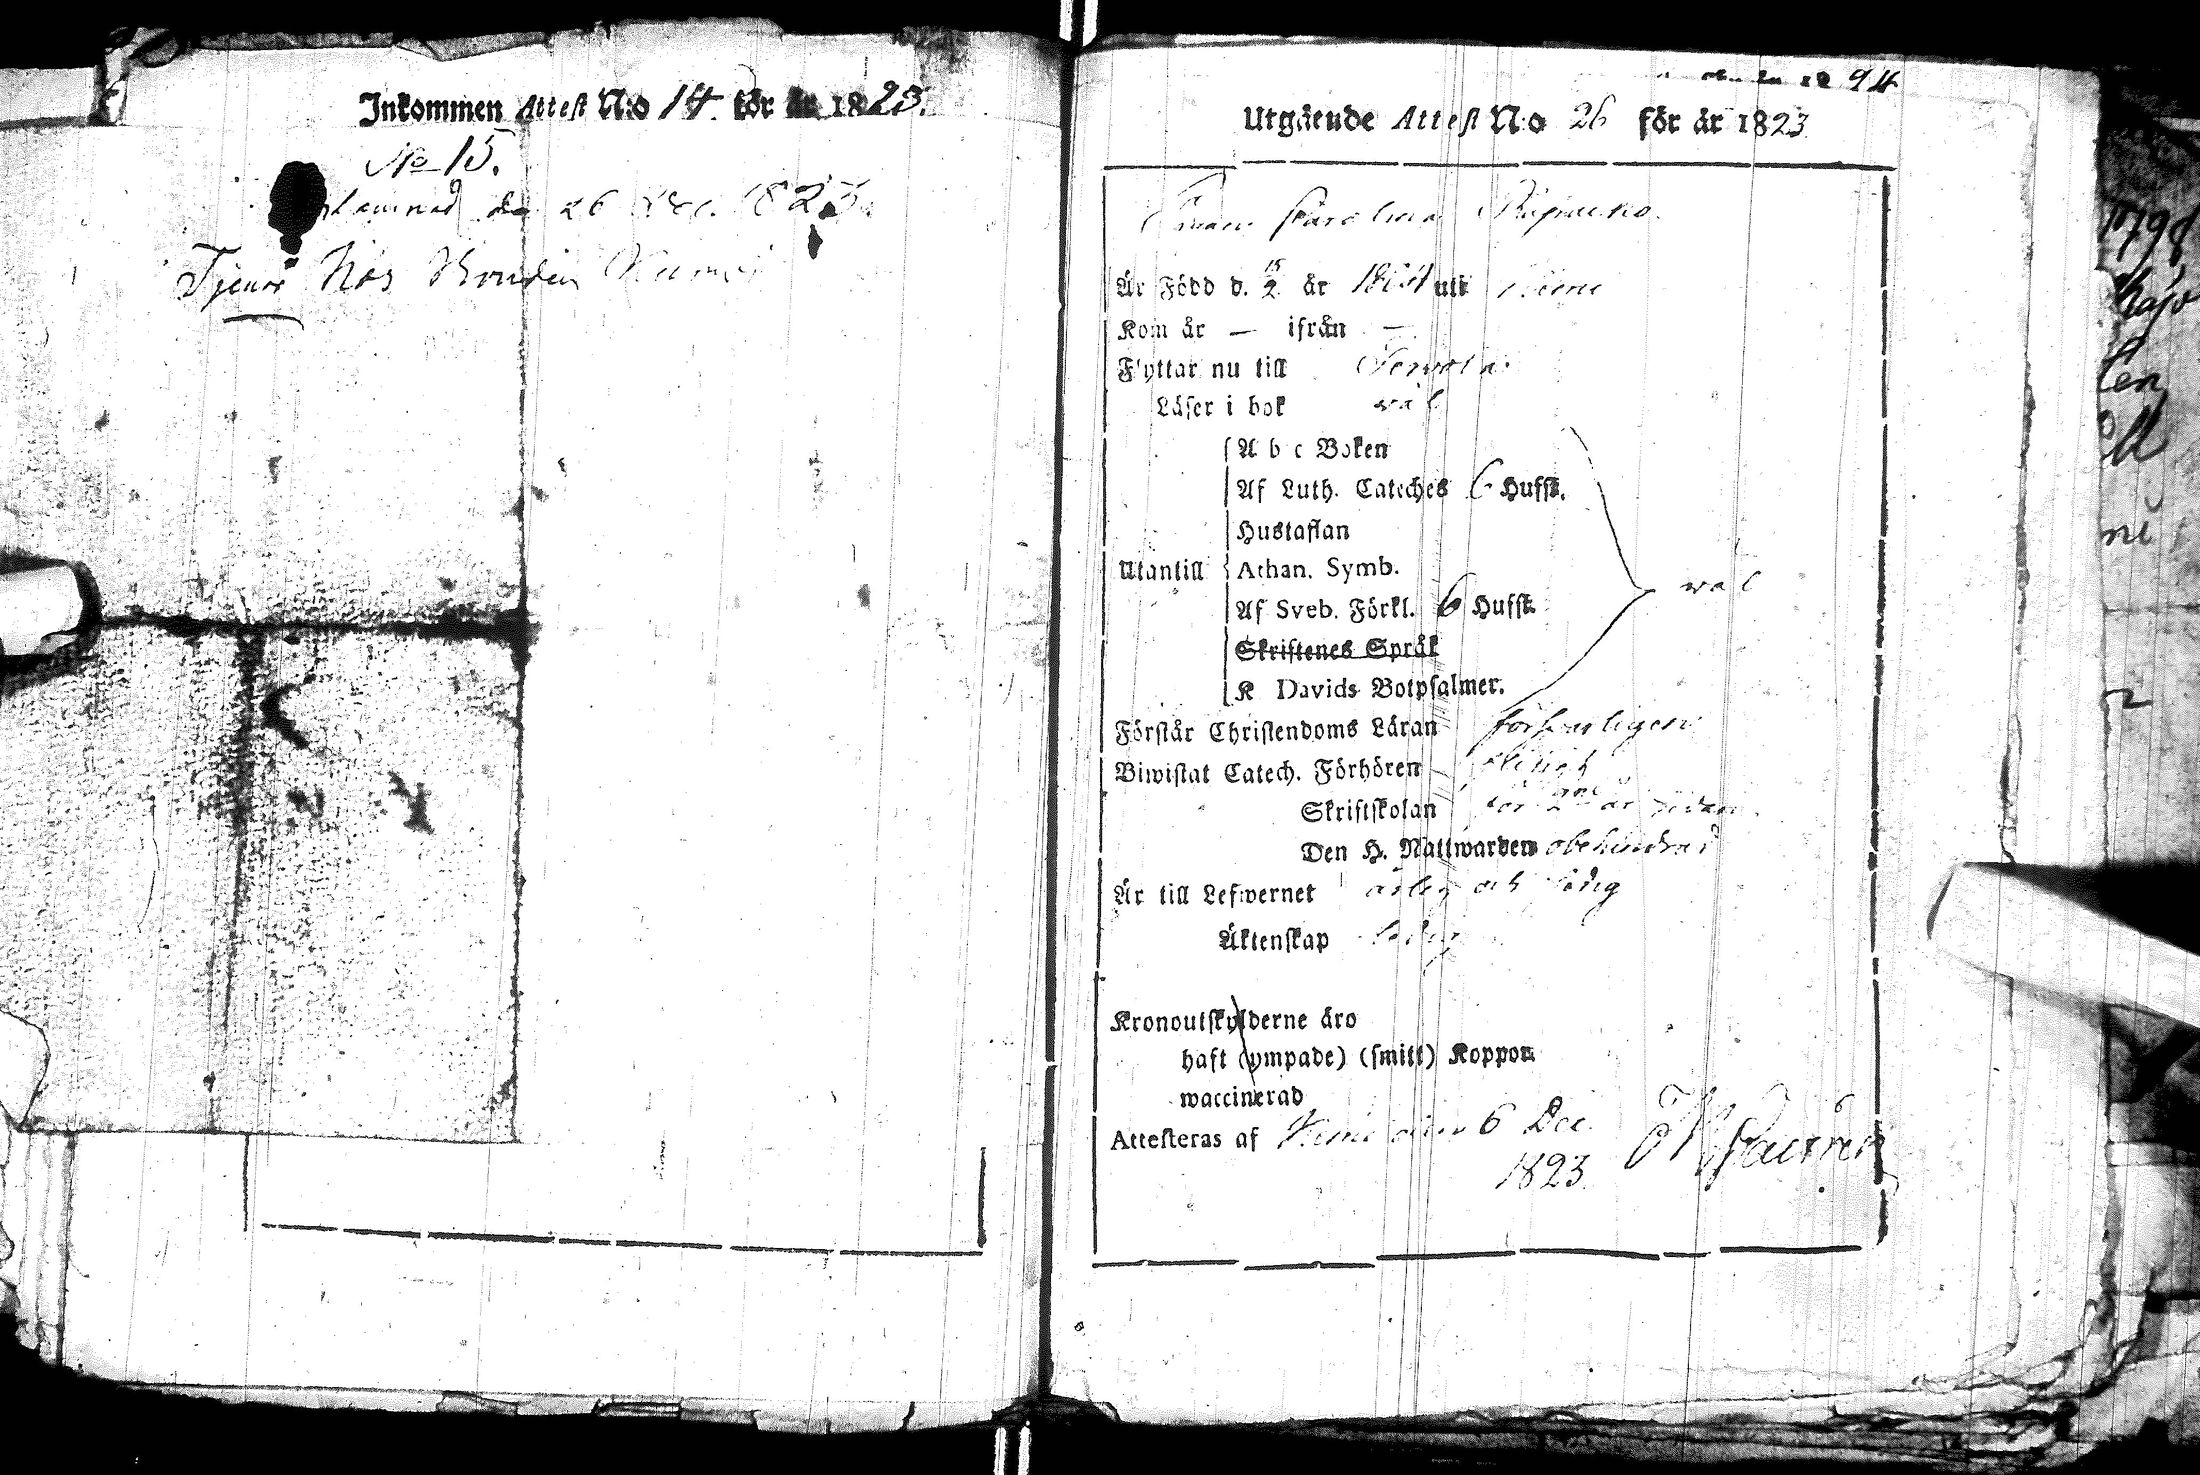 Inkommen Attest N:o 14 för år 1823.
No 15.
den 26 Dec. 1823.
Tjenar hos Bonden
94
Utgående Attest N:o 26 för år 1823
Carolina
Är Född d. 15/2 år uti Kemi
Kom år — ifrån —
Flyttar nu till Tervola
Läser i bok wäl
A b c Boken
Af Luth. Cateches 6 Hufst.
Hustaflan
Utantill Athan. Symb. wäl
Af Sveb. Förkl. 6 Hufst.
Skriftenes Språk
K Davids Botpsalmer.
Förstår Christendoms Läran försvarligen
Biwistat Catech. Förhören flitigt
Skriftskolan för 2ne år sedan
Den H. Nattwarden obehindrad
Är till Lefwernet ärlig och
Äktenskap ledig
Kronoutskylderne äro
haft (ympade) (smitt) Koppor
waccinerad
Attesteras af Kemi den 6 Dec.
1823
1798